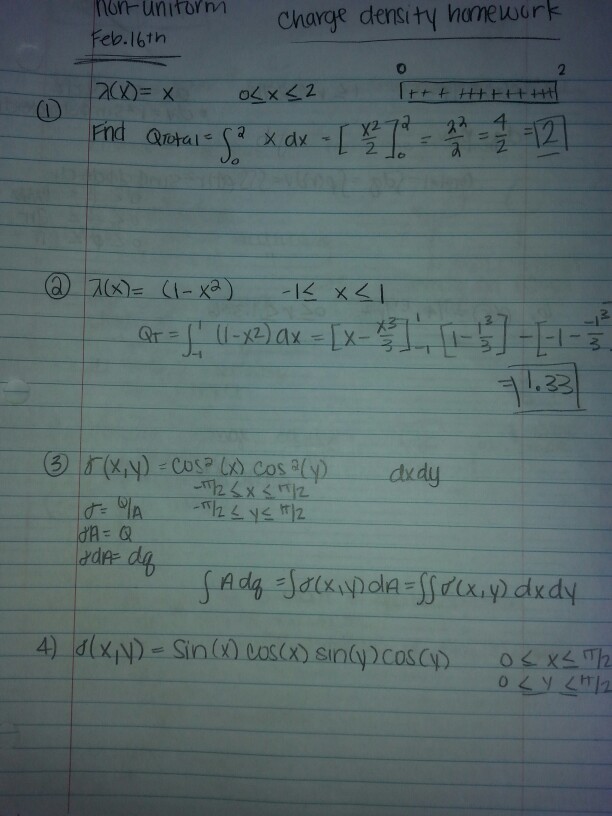 non-uniform charge density homework
Feb. 16th
0 2
① λ(x) = x 0 ≤ x ≤ 2 + + + + + + + + + +
Find QTotal = ∫₀² x dx = [x²/2]₀² = 2²/2 = 4/2 = 2
② λ(x) = (1-x²) -1 ≤ x ≤ 1
QT = ∫₋₁¹ (1-x²) dx = [x - x³/3]₋₁¹ [1 - 1³/3] - [-1 - -1³/3
= 1.33
③ σ(x,y) = cos²(x) cos²(y) dxdy
-π/2 ≤ x ≤ π/2
σ = Q/A -π/2 ≤ y ≤ π/2
σA = Q
σdA = dq
∫ A dq = ∫σ(x,y) dA = ∫∫σ(x,y) dxdy
4) σ(x,y) = sin(x) cos(x) sin(y) cos(y) 0 ≤ x ≤ π/2
0 ≤ y ≤ π/2